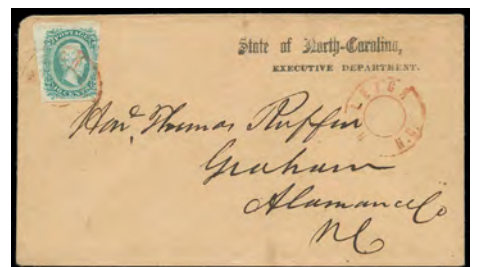 State of North-Carolina,
EXECUTIVE DEPARTMENT.
LEIGH
N.C.
Hon. Thomas Ruffin
Graham
Alamance Co
NC